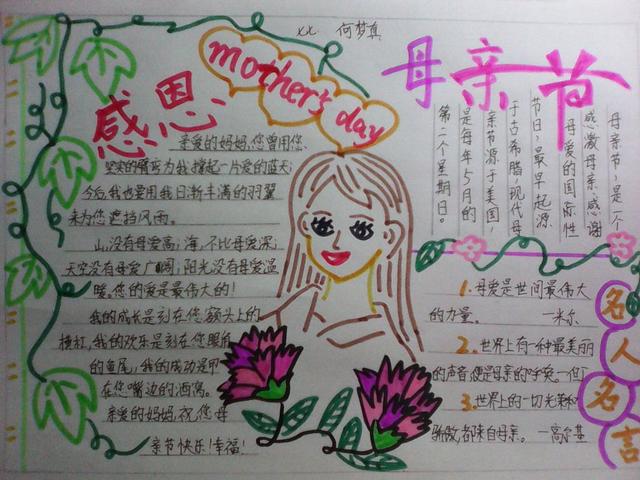 xx 何梦真
mother's day
感恩
亲爱的妈妈,您曾用您
坚实的臂弯为我撑起一片爱的蓝天;
今后,我也要用我日渐丰满的羽翼
来为您遮挡风雨。
山,没有母爱高;海,不比母爱深;
天空没有母爱广阔;阳光没有母爱温
暖。您的爱是最伟大的!
我的成长是刻在您额头上的
横杠,我的欢乐是刻在您眼角
的鱼尾;我的成功是甲
在您嘴边的酒窝。
亲爱的妈妈,祝您母
亲节快乐!幸福!
母亲节
母亲节,是一个
感激母亲感谢
母爱的国际性
节日,最早起源
于古希腊现代母
亲节源于美国,
是每年5月的
第二个星期日。
名人名言
1.母爱是世间最伟大
的力量。 —米尔
2.世界上有一种最美丽
的声音,便是母亲的呼唤。—但丁
3.世界上的一切光荣和
骄傲,都来自母亲。—高尔基